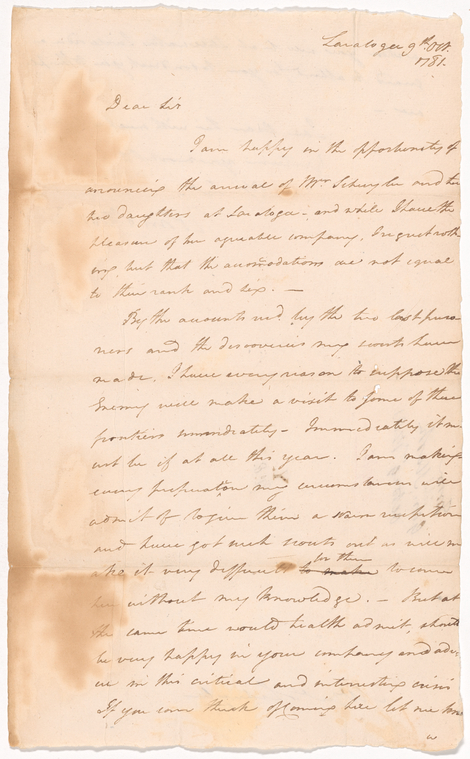 Saratoga 9th Octr.
1781.
Dear Sir
I am happy in the opportunity of
anouncing the arrival of Mrs Schuyler and the
two daughters at Saratoga - and while I have the
pleasure of her agreable company, I regret noth
ing, but that the acomodations are not equal
to their rank and sex. —
By the accounts recd by the two last priso
ners and the discoveries my scouts have
made, I have every reason to suppose the
Enemy will make a visit to some of these
frontiers immediately - Immediately it m
ust be if at all this year. I am making
every preparation my circumstances will
admit of to give them a warm reception
and have got such scouts out as will m
ake it very difficult to make for them to come
here without my knowledge. — But at
the same time would health admit, should
be very happy in your company and advi
ce in this critical and interesting crisis
If you can think of coming here let me know